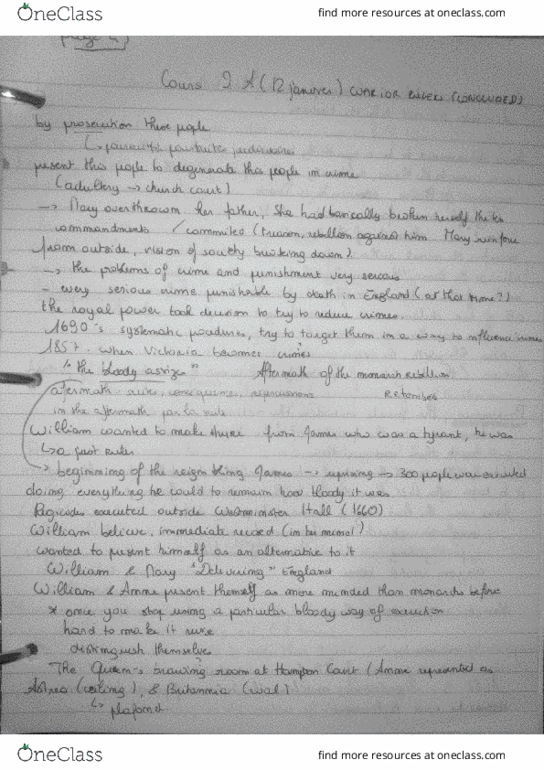 OneClass
find more resources at oneclass.com
Cours 2 A (12 janvier) WARRIOR RULERS (CONCLUDED)
by prosecution these people
present this people to degenerate this people in crime
(adultery → church court)
→ Mary overthrown her father, she had basically broken herself the ten
commandments / commited (treason, rebellion against him Mary
from outside, vision of society breaking down).
→ the problems of crime and punishment very serious
- every serious crime punishable by death in England (at that time?)
the royal power took decision to try to reduce crimes.
1690's systematic procedures, try to target them in a way to influence
1857. when Victoria becomes
"the bloody assize" Aftermath of the monarch rebellion
aftermath suite, conséquences, répercussions Retombées
in the aftermath par la suite
William wanted to make from James who was a tyrant, he was
↳ a just ruler
→ beginning of the reign King James → uprising → 300 people was executed
doing everything he could to remain how bloody it was
Regicides executed outside Westminister Hall (1660)
William believe, immediate record
wanted to present himself as an alternative to it
William & Mary "Delivering" England
William & Anne present themself as more minded than monarchs before
* once you stop using a particular bloody way of execution
hard to make it
distinguish themselves
The Queen's drawing room at Hampton Court (Anne represented as
Astrea (ceiling), & Britannia (wall)
↳ plafond
OneClass
find more resources at oneclass.com